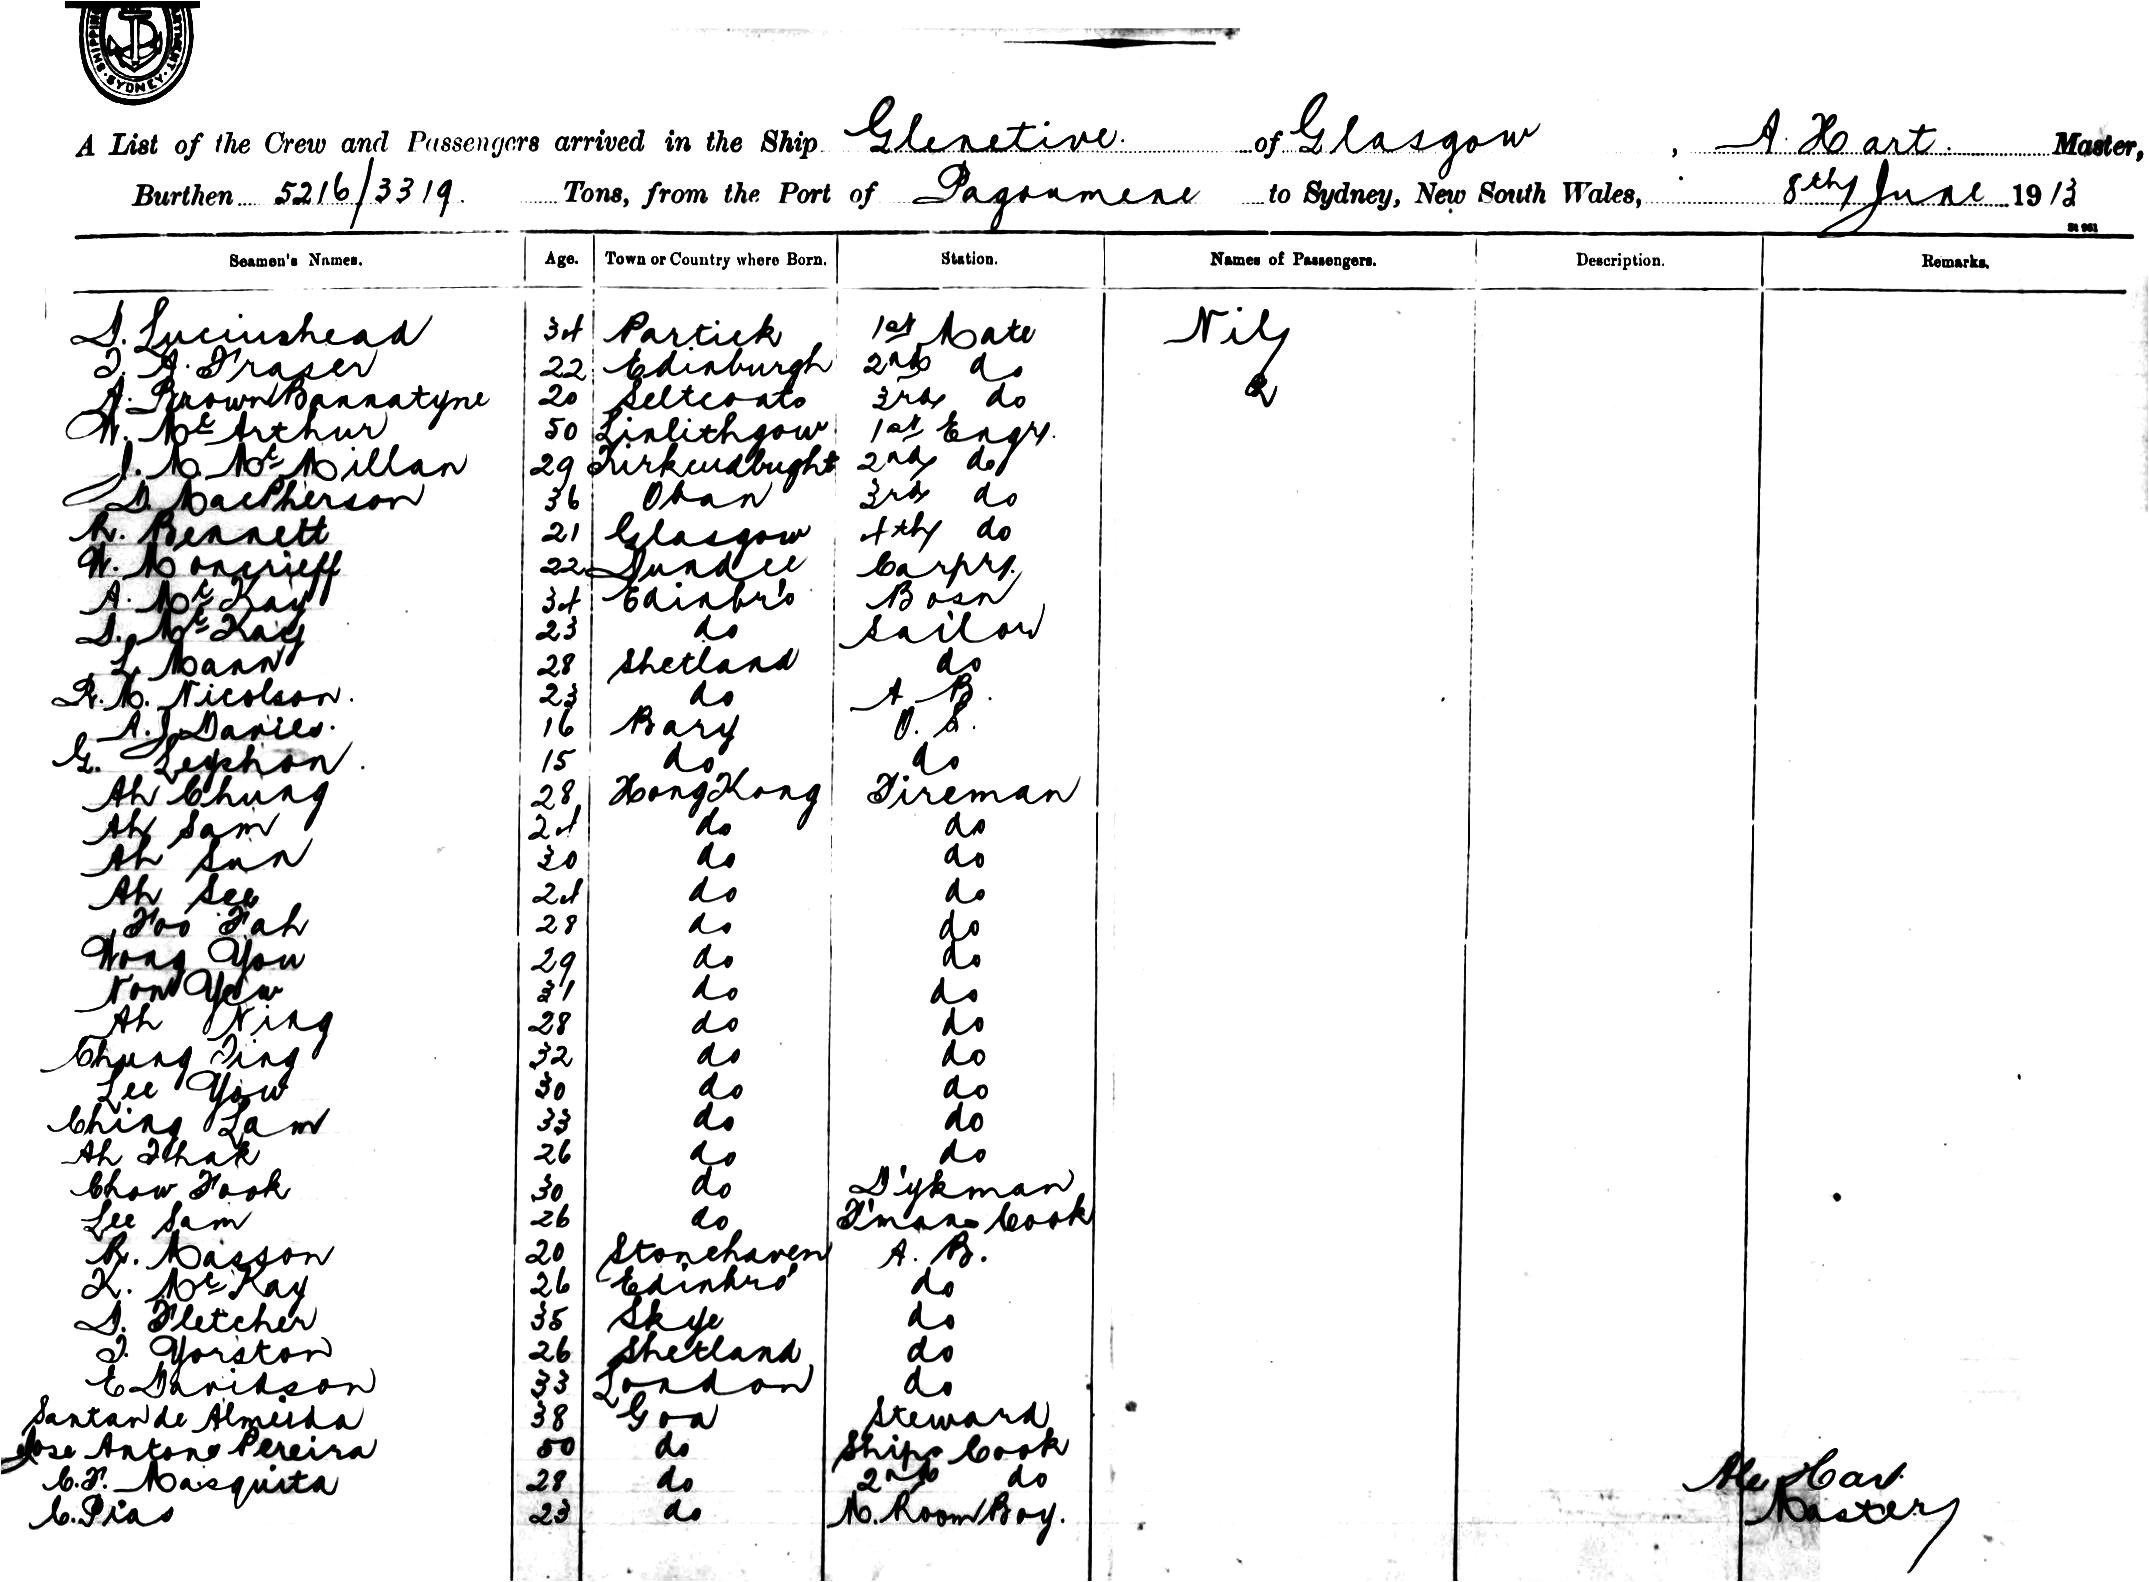 SHIPPING DEPARTMENT SYDNEY
A List of the Crew and Passengers arrived in the Ship Glenetive. of Glasgow, A. Hart. Master,
Burthen 5216/3319. Tons, from the Port of Pagoumene to Sydney, New South Wales, 8th June 1913
St 961
Seamen's Names. Age. Town or Country where Born. Station. Names of Passengers. Description. Remarks.
D. Luciushead 34 Partick 1st Mate Nil
J. A. Fraser 22 Edinburgh 2nd do
A. Brown Bannatyne 20 Seltcoats 3rd do
W. McArthur 50 Linlithgow 1st Engr.
J. M. McMillan 29 Kirkcudbught 2nd do
D. MacPherson 36 Oban 3rd do
R. Bennett 21 Glasgow 4th do
W. Moncrieff 22 Dundee Carptr.
A. McKay 34 Edinbr'o Bosn
D. McKay 23 do Sailor
L. Mann 28 Shetland do
R. M. Nicolson. 23 do A. B.
A. J. Davies. 16 Bary O. S.
G. Leyshon. 15 do do
Ah Chung 28 Hong Kong Fireman
Ah Sam 24 do do
Ah Sun 30 do do
Ah See 24 do do
Foo Fah 28 do do
Wong You 29 do do
Non Yew 31 do do
Ah Ning 28 do do
Chung Ting 32 do do
Lee Yow 30 do do
Ching Lam 33 do do
Ah Thak 26 do do
Chow Fook 30 do D'ykman
Lee Sam 26 do F'mans Cook
R. Masson 20 Stonehaven A. B.
K. McKay 26 Edinbro' do
D. Fletcher 35 Skye do
J. Yorston 26 Shetland do
E Davidson 33 London do
Santan de Almeida 38 Goa Steward
Jose Antono Pereira 50 do Ships Cook
C. F. Masquita 28 do 2nd do Alex Hart
C. Pias 23 do M. Room Boy. Master